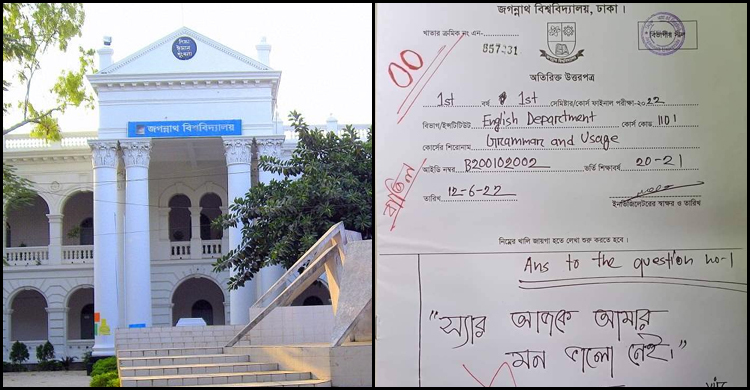 শিক্ষা
ঈমান
শৃঙ্খলা
জগন্নাথ বিশ্ববিদ্যালয়
জগন্নাথ বিশ্ববিদ্যালয়, ঢাকা।
খাতার ক্রমিক নং এন-
857231
বিভাগীয় সীল
00
অতিরিক্ত উত্তরপত্র
1st বর্ষ 1st সেমিস্টার/কোর্স ফাইনাল পরীক্ষা-২০22
বিভাগ/ইন্সটিটিউট English Department কোর্স কোড 1101
কোর্সের শিরোনাম Grammar and Usage
আইডি নম্বর B200102002 ভর্তি শিক্ষাবর্ষ 20-21
বাতিল
তারিখ 12-6-22
ইনভিজিলেটরের স্বাক্ষর ও তারিখ
নিম্নের খালি জায়গা হতে লেখা শুরু করতে হবে।
Ans to the question no-1
"স্যার আজকে আমার
মন ভালো নেই।"